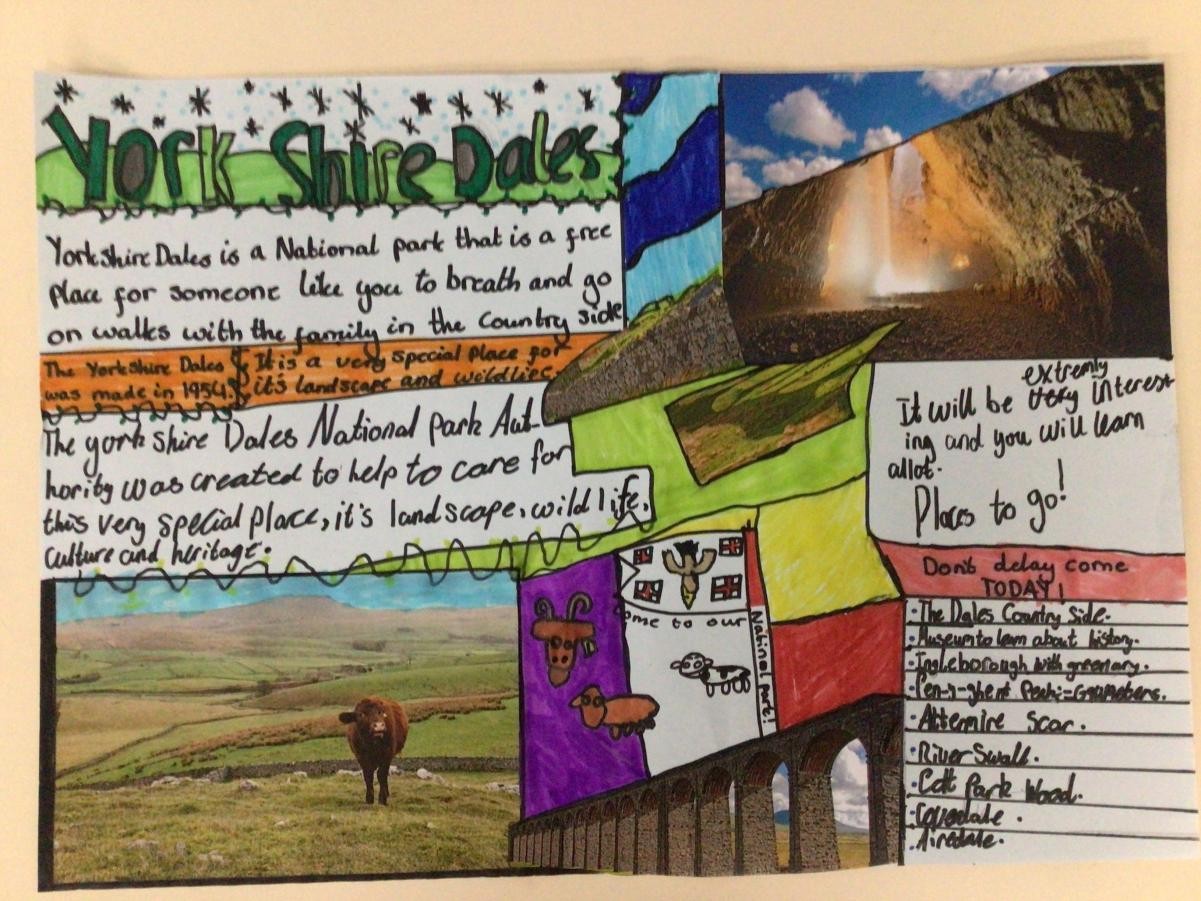 York Shire Dales
Yorkshire Dales is a National park that is a free
place for someone like you to breath and go
on walks with the family in the country side
The Yorkshire Dales
was made in 1954.
It is a very special place for
it's landscape and wildlife.
The york shire Dales National park Aut-
hority was created to help to care for
this very special place, it's landscape, wild life,
culture and heritage.
ome to our
National park!
extremly
It will be very interest
ing and you will learn
allot.
Places to go!
Don't delay come
TODAY!
·The Dales Country Side.
·Museum to learn about history.
·Ingleborough with greenary.
·Pen-y-ghent
·Attermire Scar.
·River Swall.
·Colt Park Wood.
·Coverdale.
·Airedale.